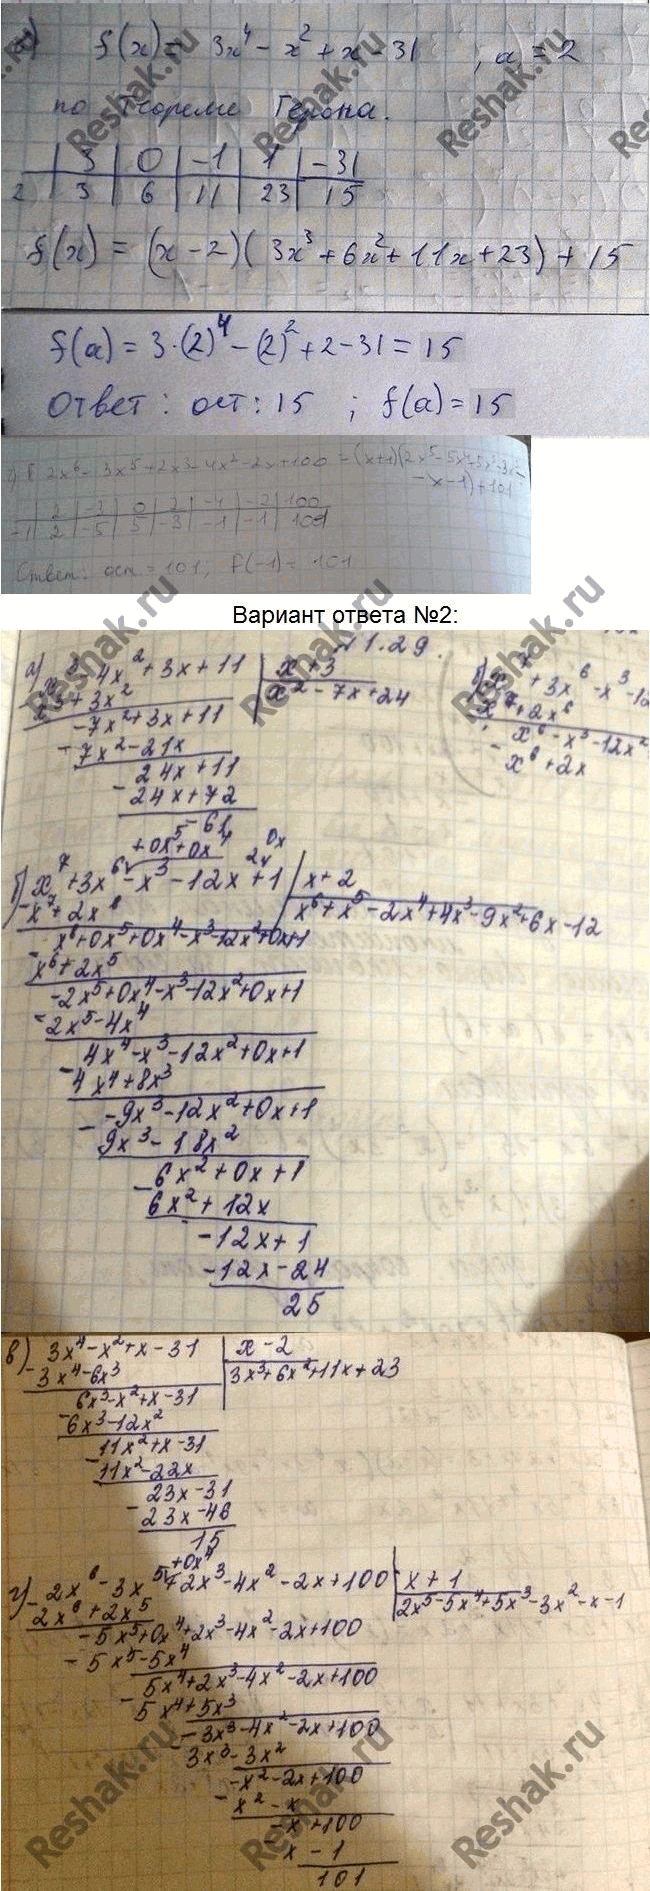 в) f(x) = 3x⁴ - x² + x - 31 , a = 2
по теореме Герона.
| 3 | 0 | -1 | 1 | -31
2 | 3 | 6 | 11 | 23 | 15
f(x) = (x - 2)(3x³ + 6x² + 11x + 23) + 15
f(a) = 3·(2)⁴ - (2)² + 2 - 31 = 15
Ответ: ост: 15 ; f(a) = 15
2x⁶ - 3x⁵ + 2x³ - 4x² - 2x + 100 = (x+1)(2x⁵ - 5x⁴ + 5x³ - 3x² -
- x - 1) + 101
| 2 | -3 | 0 | 2 | -4 | -2 | 100
-1 | 2 | -5 | 5 | -3 | -1 | -1 | 101
Ответ: ост = 101, f(-1) = 101
Вариант ответа №2:
1.29.
а) x³ - 4x² + 3x + 11 | x + 3
x³ + 3x² | x² - 7x + 24
-7x² + 3x + 11
- 7x² - 21x
24x + 11
- 24x + 72
-61
б) x⁷ + 3x⁶ - x³ - 12
x⁷ + 2x⁶
x⁶ - x³ - 12x²
- x⁶ + 2x
+0x⁵+0x⁴ 0x
б) x⁷ + 3x⁶ - x³ - 12x + 1 | x + 2
- x⁷ + 2x⁶ | x⁶ + x⁵ - 2x⁴ + 4x³ - 9x² + 6x - 12
x⁶ + 0x⁵ + 0x⁴ - x³ - 12x² + 0x + 1
- x⁶ + 2x⁵
-2x⁵ + 0x⁴ - x³ - 12x² + 0x + 1
- 2x⁵ - 4x⁴
4x⁴ - x³ - 12x² + 0x + 1
- 4x⁴ + 8x³
-9x³ - 12x² + 0x + 1
- 9x³ - 18x²
6x² + 0x + 1
- 6x² + 12x
-12x + 1
- 12x - 24
25
в) 3x⁴ - x² + x - 31 | x - 2
- 3x⁴ - 6x³ | 3x³ + 6x² + 11x + 23
6x³ - x² + x - 31
- 6x³ - 12x²
11x² + x - 31
- 11x² - 22x
23x - 31
- 23x - 46
15
+0x⁴
г) 2x⁶ - 3x⁵ + 2x³ - 4x² - 2x + 100 | x + 1
- 2x⁶ + 2x⁵ | 2x⁵ - 5x⁴ + 5x³ - 3x² - x - 1
-5x⁵ + 0x⁴ + 2x³ - 4x² - 2x + 100
- 5x⁵ - 5x⁴
5x⁴ + 2x³ - 4x² - 2x + 100
- 5x⁴ + 5x³
-3x³ - 4x² - 2x + 100
- 3x³ - 3x²
-x² - 2x + 100
- x² - x
-x + 100
- x - 1
101
Reshak.ru